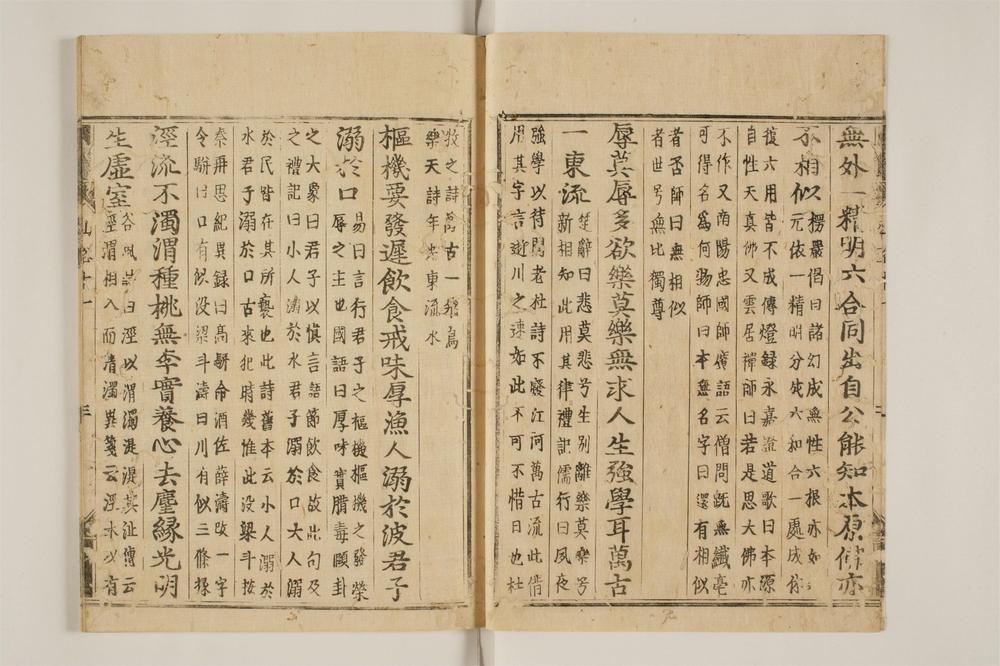 無外一精明六合同出自公能知本原佛亦
不相似楞嚴偈曰諸幻成無性六根亦如
元依一精明分成六和合一處成休
復六用皆不成傳燈録永嘉證道歌曰本源
自性天真佛又雲居禪師曰若是思大佛亦
不作又南陽忠國師廣語云僧問既無纖毫
可得名爲何物師曰本無名字曰還有相似
者否師曰無相似
者世号無比獨尊
辱莫辱多欲樂莫樂無求人生強學耳萬古
一東流楚辭曰悲莫悲兮生別離樂莫樂兮
新相知此用其律禮記儒行曰夙夜
強學以待問老杜詩不廢江河萬古流此借
用其字言逝川之速如此不可不惜日也杜
牧之詩萬古一飛鳥
樂天詩年光東流水
樞機要發遲飲食戒味厚漁人溺於波君子
溺於口易曰言行君子之樞機樞機之發榮
辱之主也國語曰厚味寔腊毒頤卦
之大象曰君子以慎言語節飲食故此句及
之禮記曰小人溺於水君子溺於口大人溺
於民皆在其所褻也此詩舊本云小人溺於
水君子溺於口古來犯時幾惟此没梁斗按
秦再思紀異録曰高駢命酒佐薛濤改一字
令駢曰口有似没梁斗濤曰川有似三條椽
涇流不濁渭種桃無李實養心去塵縁光明
生虛室谷風詩曰涇以渭濁湜湜其沚傳云
涇渭相入而清濁異箋云涇水以有